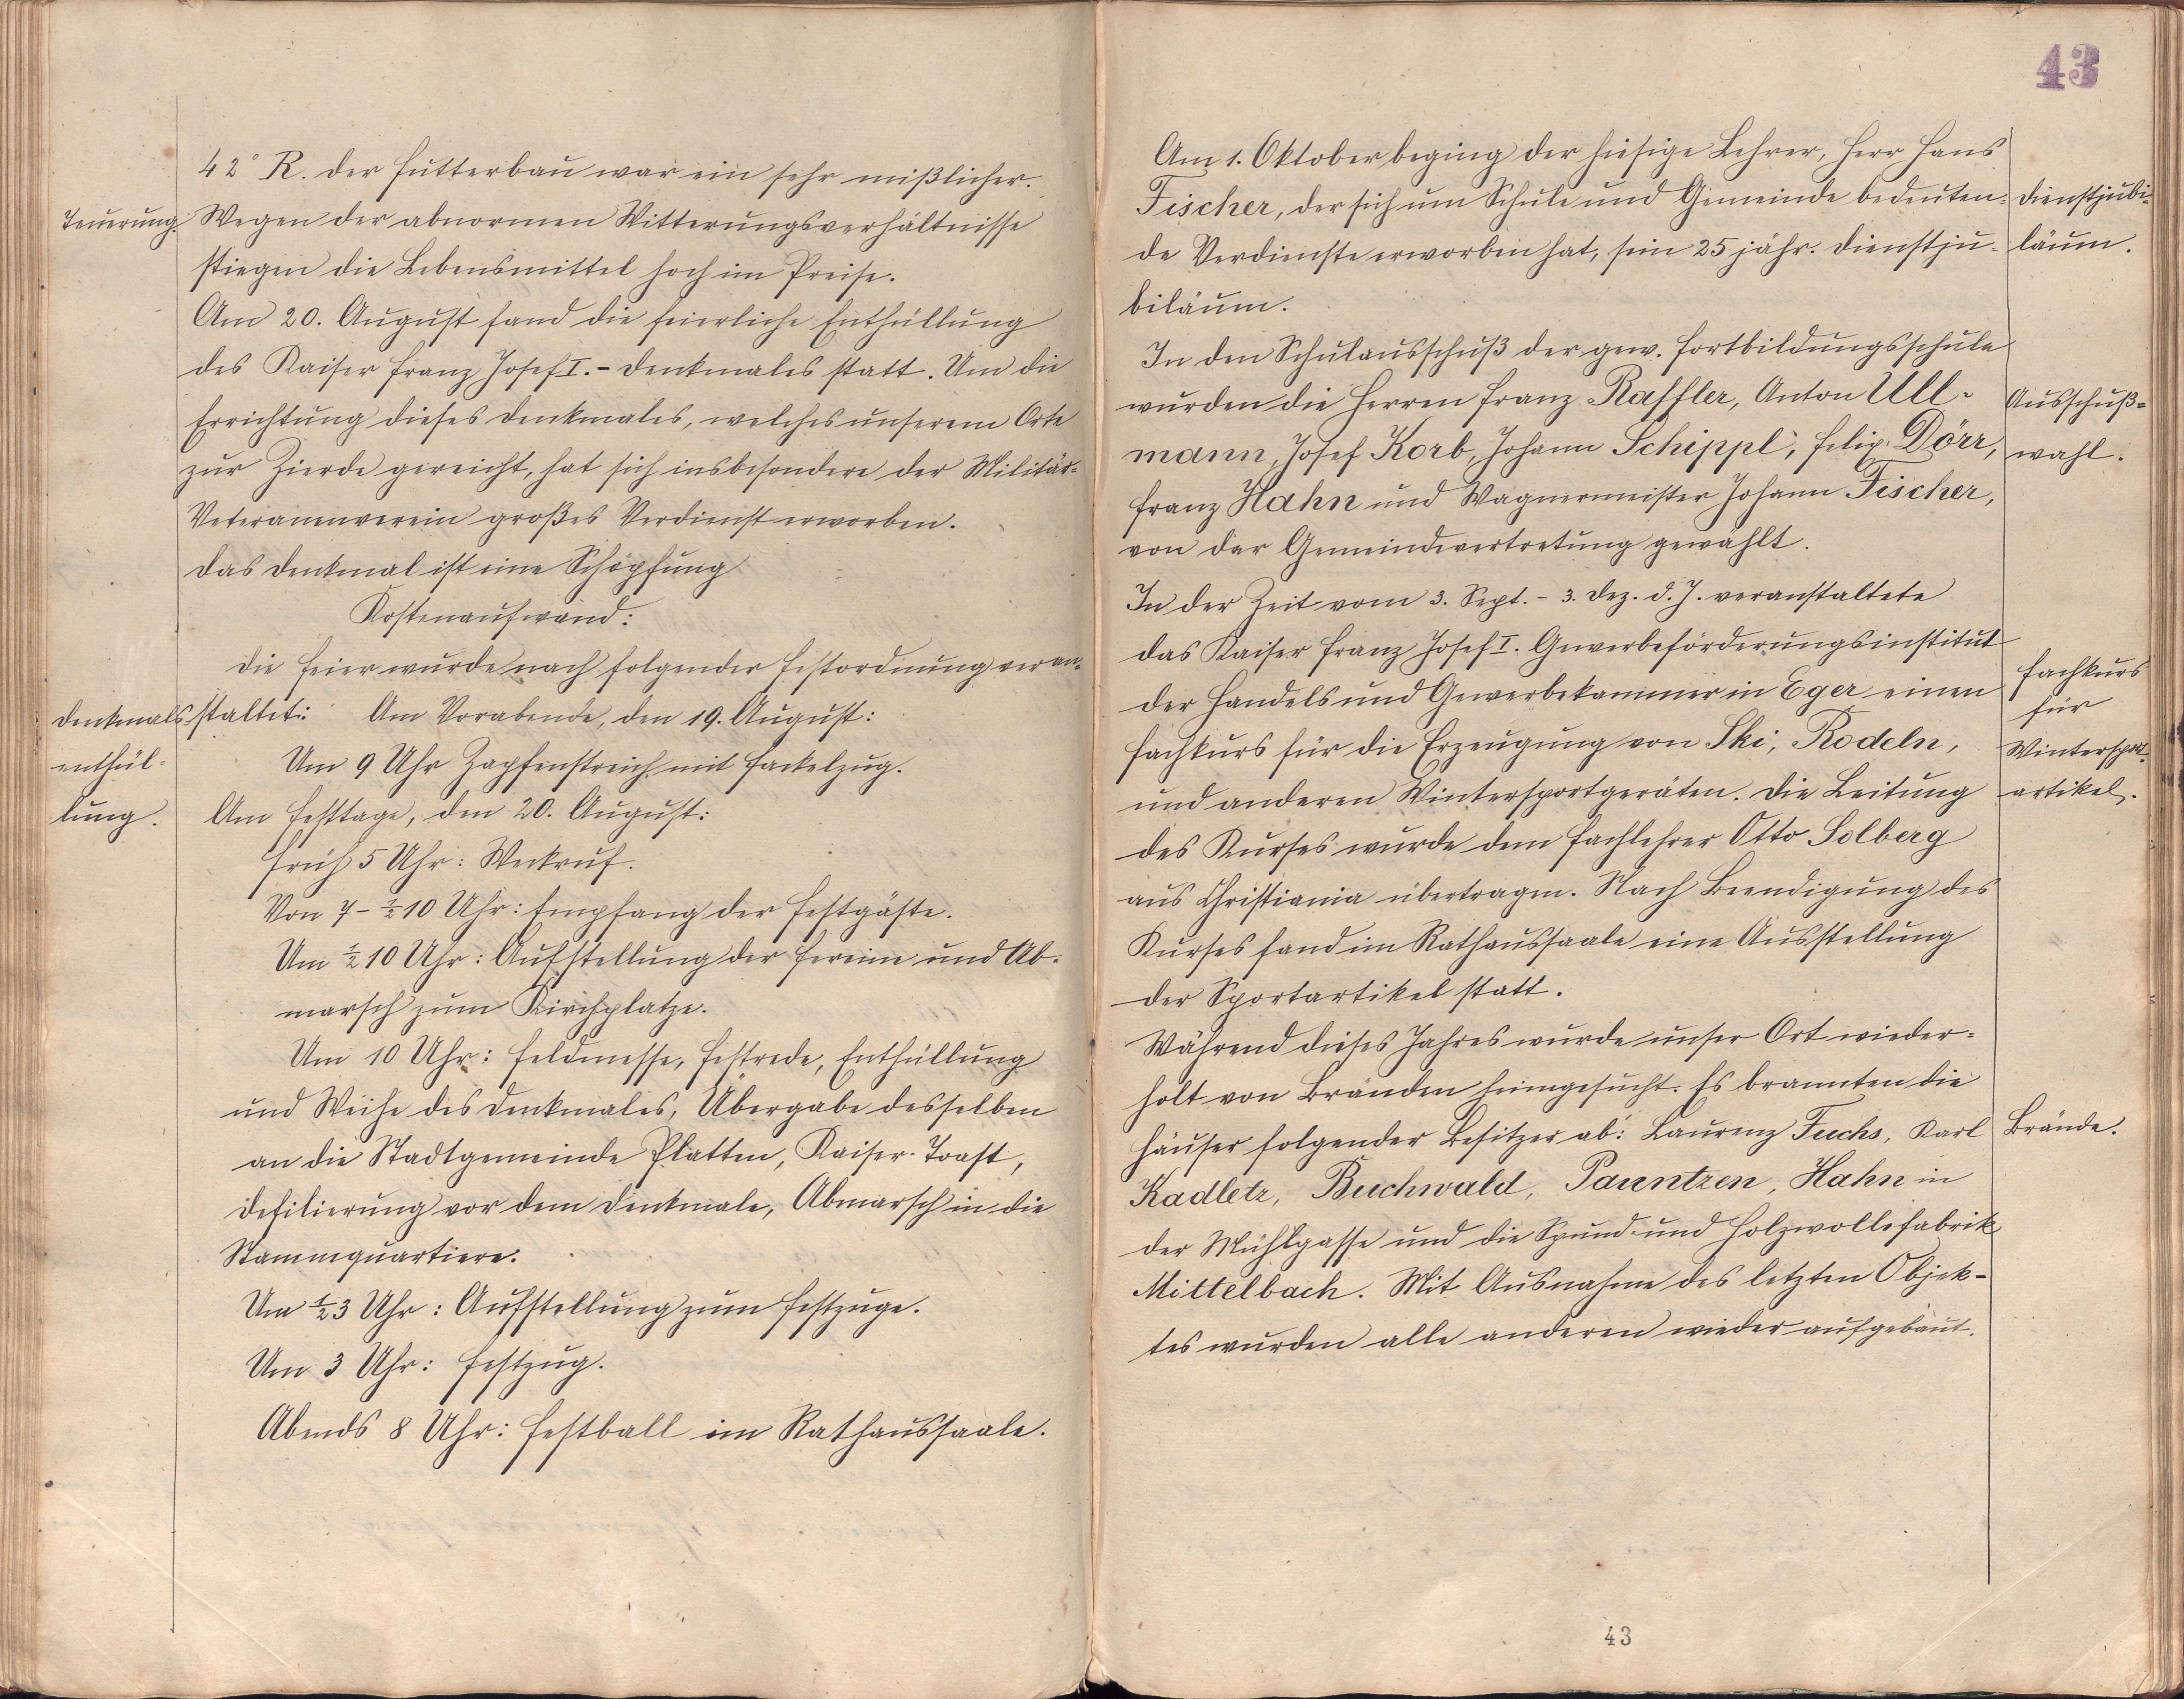 42° R. Der Futterbau war ein sehr mißlicher.
Teuerung.
Wegen der abnormen Witterungsverhältnisse
stiegen die Lebensmittel hoch im Preise.
Am 20. August fand die feierliche Enthüllung
des Kaiser Franz Josef I.-Denkmales statt. Um die
Errichtung dieses Denkmales, welches unserem Orte
zur Zierde gereicht, hat sich insbesondere der Militär-
Veteranenverein großes Verdienst erworben.
Das Denkmal ist eine Schöpfung
Kostenaufwand:
Die Feier wurde nach folgender Festordnung veran-
Denkmals-
enthül-
lung.
staltet: Am Vorabende, den 19. August:
Um 9 Uhr Zapfenstreich mit Fackelzug.
Am Festtage, den 20. August:
Früh 5 Uhr: Weckruf.
Von 7-½10 Uhr: Empfang der Festgäste.
Um ½10 Uhr: Aufstellung der Vereine und Ab-
marsch zum Kirchplatze.
Um 10 Uhr: Feldmesse, Festrede, Enthüllung
und Weihe des Denkmales, Übergabe desselben
an die Stadtgemeinde Platten, Kaiser-Toast,
Defilierung vor dem Denkmale, Abmarsch in die
Stammquartiere.
Um ½3 Uhr: Aufstellung zum Festzuge.
Um 3 Uhr: Festzug.
Abends 8 Uhr: Festball im Rathaussaale.
43
Am 1. Oktober beging der hiesige Lehrer, Herr Hans
Fischer, der sich um Schule und Gemeinde bedeuten-
de Verdienste erworben hat, sein 25 jähr. Dienstju-
biläum.
Dienstjubi-
läum.
In den Schulausschuß der gew. Fortbildungsschule
wurden die Herren Franz Raffler, Anton Ull-
mann, Josef Korb, Johann Schippl, Felix Dörr,
Franz Hahn und Wagnermeister Johann Fischer,
von der Gemeindevertretung gewählt.
Ausschuß-
wahl.
In der Zeit vom 3. Sept. - 3. Dez. d. J. veranstaltete
das Kaiser Franz Josef I. Gewerbeförderungsinstitut
der Handels und Gewerbekammer in Eger einen
Fachkurs für die Erzeugung von Ski, Rodeln,
und anderen Wintersportgeräten. Die Leitung
des Kurses wurde dem Fachlehrer Otto Solberg
aus Christiania übertragen. Nach Beendigung des
Kurses fand im Rathaussaale eine Ausstellung
der Sportartikel statt.
Fachkurs
für
Wintersport-
artikel.
Während dieses Jahres wurde unser Ort wieder-
holt von Bränden heimgesucht. Es brannten die
Häuser folgender Besitzer ab: Laurenz Fuchs, Karl
Kadletz, Buchwald, Pauntzen, Hahn in
der Mühlgasse und die Spund- und Holzwollefabrik
Mittelbach. Mit Ausnahme des letzten Objek-
tes wurden alle anderen wieder aufgebaut.
Brände.
43